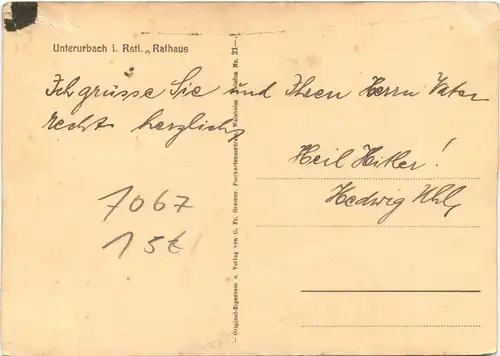 Unterurbach i. Rstl. „ Rathaus
Ich grüsse Sie und Ihren Herrn Vater
recht herzlich,
Heil Hitler!
Hedwig Uhl,
7067
15€
– Original-Eigentum u. Verlag von C. Fr. Greiner, Postkartenzentrale Waiblingen Nr. 21